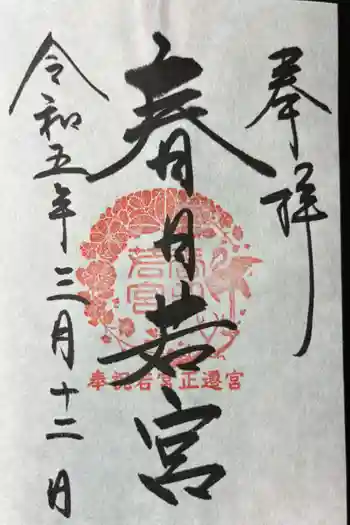 奉拝
春日若宮
令和五年三月十二日
春日若宮
奉祝若宮正遷宮